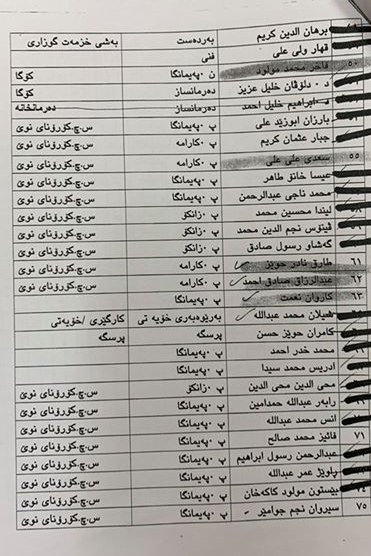 برهان الدین کریم بەردەست بەشی خزمەت گوزاری
قهار ولی علی فنی
٥٠ فاخر محمد مولود ن پەیمانگا کۆگا
د. دلۆڤان خلیل عزیز دەرمانساز کۆگا
د. ابراهیم خلیل احمد دەرمانساز دەرمانخانە
بارزان ابوزێد علی پ.پەیمانگا س.چ.کۆرۆنای نوێ
جبار عثمان کریم پ.کارامە س.چ.کۆرۆنای نوێ
٥٥ سعدی علی علی پ.کارامە س.چ.کۆرۆنای نوێ
عیسا خانۆ طاهر پ.پەیمانگا س.چ.کۆرۆنای نوێ
محمد ناجی عبدالرحمن پ.پەیمانگا س.چ.کۆرۆنای نوێ
لیندا محسین محمد پ.زانکۆ س.چ.کۆرۆنای نوێ
ڤینۆس نجم الدین محمد پ.زانکۆ س.چ.کۆرۆنای نوێ
گەشاو رسول صادق پ.زانکۆ س.چ.کۆرۆنای نوێ
٦١ طارق نادر حوێز پ.کارامە س.چ.کۆرۆنای نوێ
٦٢ عبدالرزاق صادق احمد پ.کارامە س.چ.کۆرۆنای نوێ
٦٣ کاروان نعمت پ.پەیمانگا
هێلان محمد عبدالله بەرێوەبەری خۆیە تی کارگێری/خۆیەتی
کامران حوێز حسن پرسگە پرسگە
محمد خدر احمد پ.پەیمانگا
ادریس محمد سیدا پ.پەیمانگا
محی الدین محی الدین پ.زانکۆ س.چ.کۆرۆنای نوێ
رابەر عبدالله حمدامین پ.پەیمانگا س.چ.کۆرۆنای نوێ
انس محمد عبدالله پ.پەیمانگا س.چ.کۆرۆنای نوێ
٧١ فائیز محمد صالح پ.پەیمانگا س.چ.کۆرۆنای نوێ
عبدالرحمن رسول ابراهیم پ.پەیمانگا س.چ.کۆرۆنای نوێ
پاوێژ عمر عبدالله پ.پەیمانگا س.چ.کۆرۆنای نوێ
بێستون مولود کاکەخان پ.پەیمانگا س.چ.کۆرۆنای نوێ
٧٥ سیروان نجم جوامێر پ.پەیمانگا س.چ.کۆرۆنای نوێ